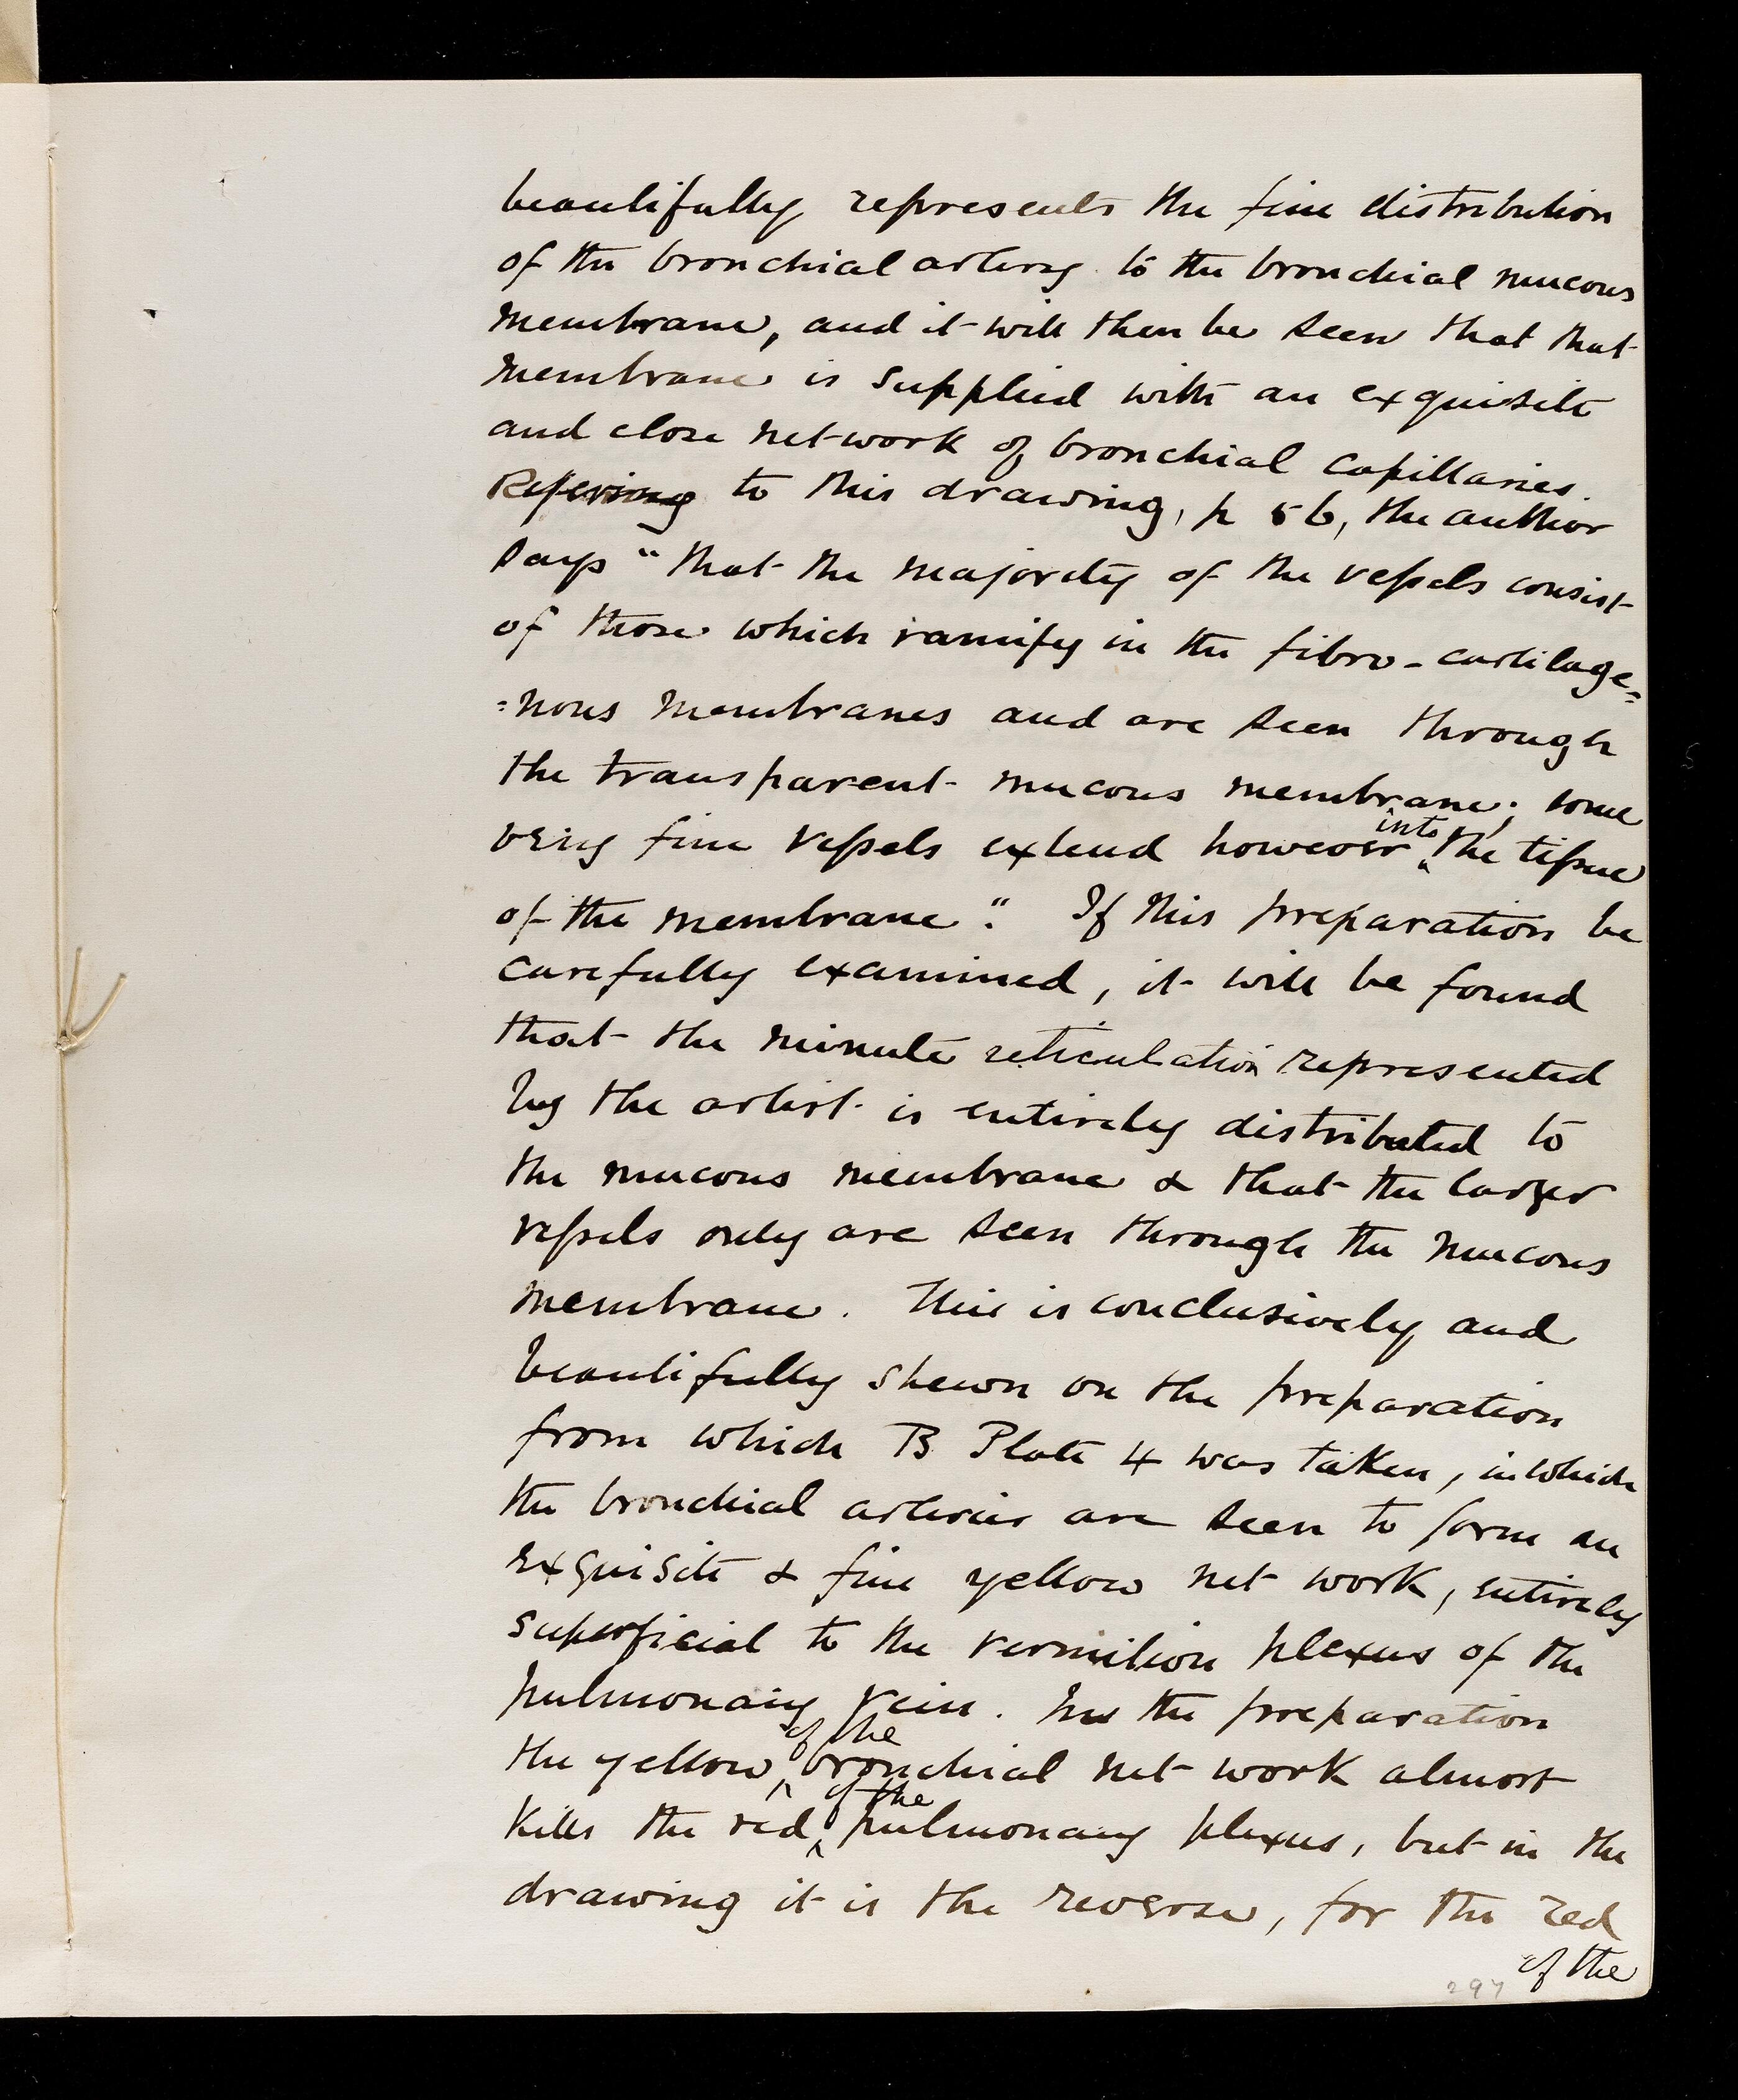 beautifully represents the fine distribution
of the bronchial artery to the bronchial mucous
membrane, and it will then be seen that that
membrane is supplied with an exquisite
and close net-work of bronchial capillaries.
Refering to this drawing, p 56, the author
says "that the majority of the vessels consist
of those which ramify in the fibro-cartilage=
=nous membranes and are seen through
the transparent mucous membrane; some
very fine vessels extend however into the tissue
of the membrane". If this preparation be
carefully examined, it will be found
that the minute reticulation represented
by the artist is entirely distributed to
the mucous membrane & that the larger
vessels only are seen through the mucous
membrane. This is conclusively and
beautifully shewn on the preparation
from which B Plate 4 was taken, in which
the bronchial arteries are seen to form an
exquisite & fine yellow net work, entirely
superficial to the vermilion plexus of the
pulmonary vein. In the preparation
the yellow of the bronchial net work almost
kills the red of the pulmonary plexus, but in the
drawing it is the reverse, for the red
of the
297